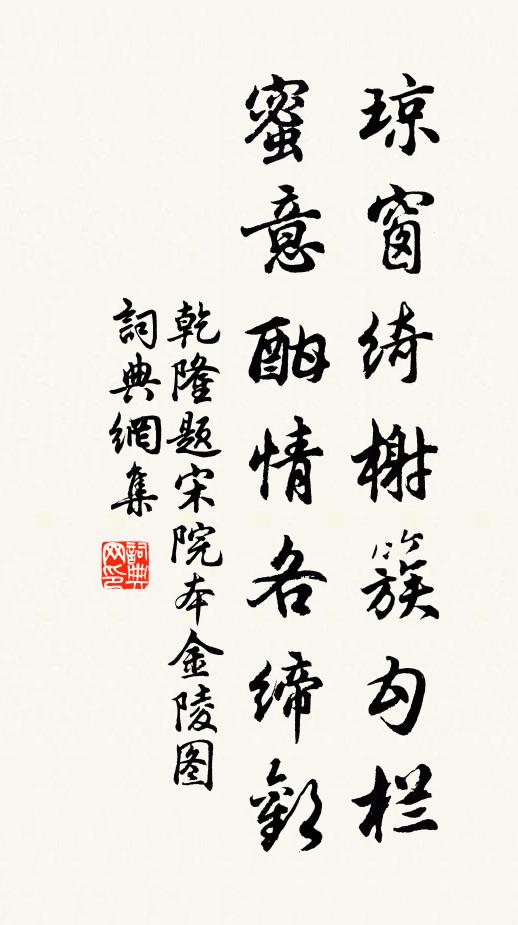 琼窗綺榭簇勾栏
蜜意酣情各締歡
乾隆题宋院本金陵图
詞典網集
詞典网印